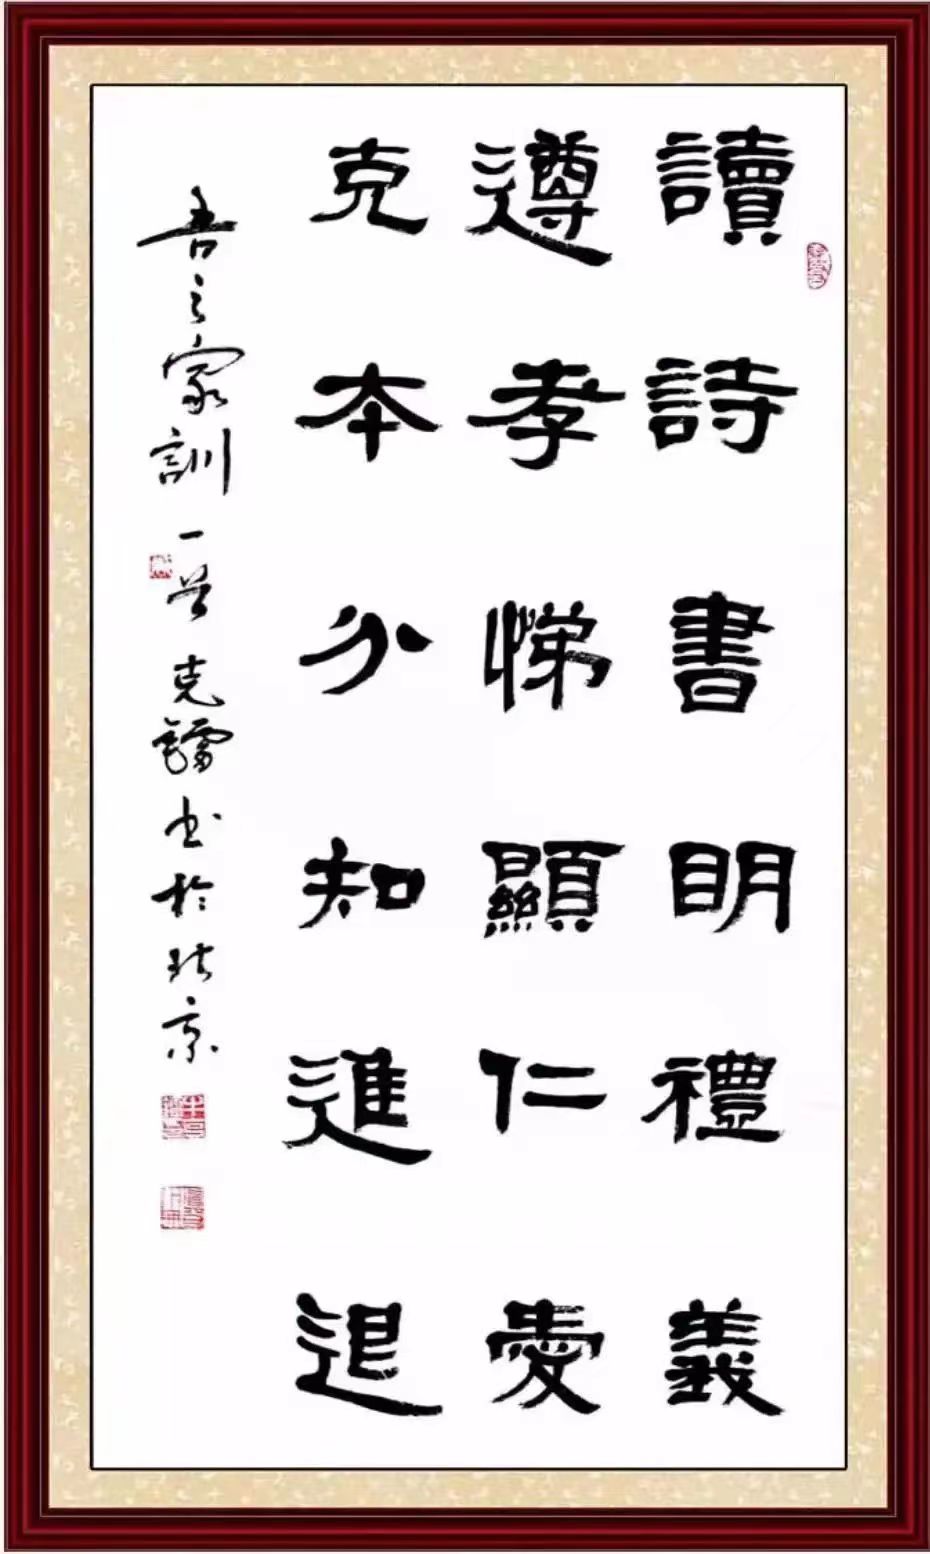 讀詩書明禮義
遵孝悌顯仁愛
克本分知進退
吾之家訓 一 克鐳书於北京